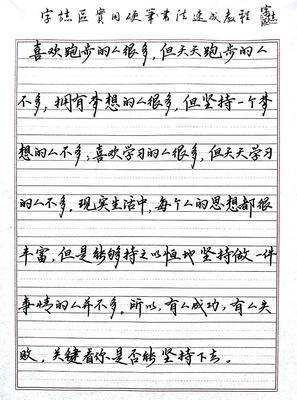 字培区实用硬笔书法速成教程
喜欢跑步的人很多,但天天跑步的人
不多,拥有梦想的人很多,但坚持一个梦
想的人不多,喜欢学习的人很多,但天天学习
的人不多。现实生活中,每个人的思想都很
丰富,但是能够持之以恒地坚持做一件
事情的人并不多。所以,有人成功,有人失
败,关键看你是否能坚持下去。